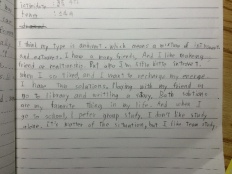 introvert : 
I think my type is ambivert, which means a mixture of introvert
and extrovert. I have a many friends, And I like making
friend or relationship. But also I
when I so tired, and I want to recharge my energy.
I have two solutions. Playing with my friend or
go to library and writing a story. Both solutions
are my favorite thing in my life. And when I
go to school, I prefer group study. I don't like study
alone. It's matter of the situation, but I like Team study.